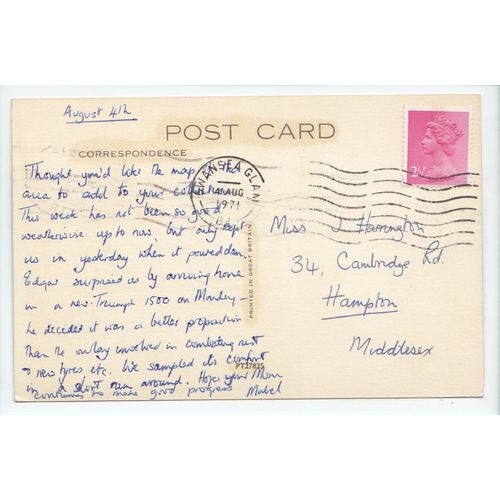 August 4th
POST CARD
CORRESPONDENCE
Thought you'd like the map of the
area to add to your collection
This week has not been so good
weatherwise up to now, but only kept
us in yesterday when it poured down
Edgar surprised us by arriving home
in a new Triumph 1500 on Monday -
he decided it was a better proposition
than the outlay involved in combating rust
+ new tyres etc. We sampled its comfort
in a short run around. Hope your Mum
continues to make good progress Mabel
SWANSEA GLAM
4 AUG
1971
PRINTED IN GREAT BRITAIN
PT27835
2½
Miss J Harrington
34, Cambridge Rd.
Hampton
Middlesex